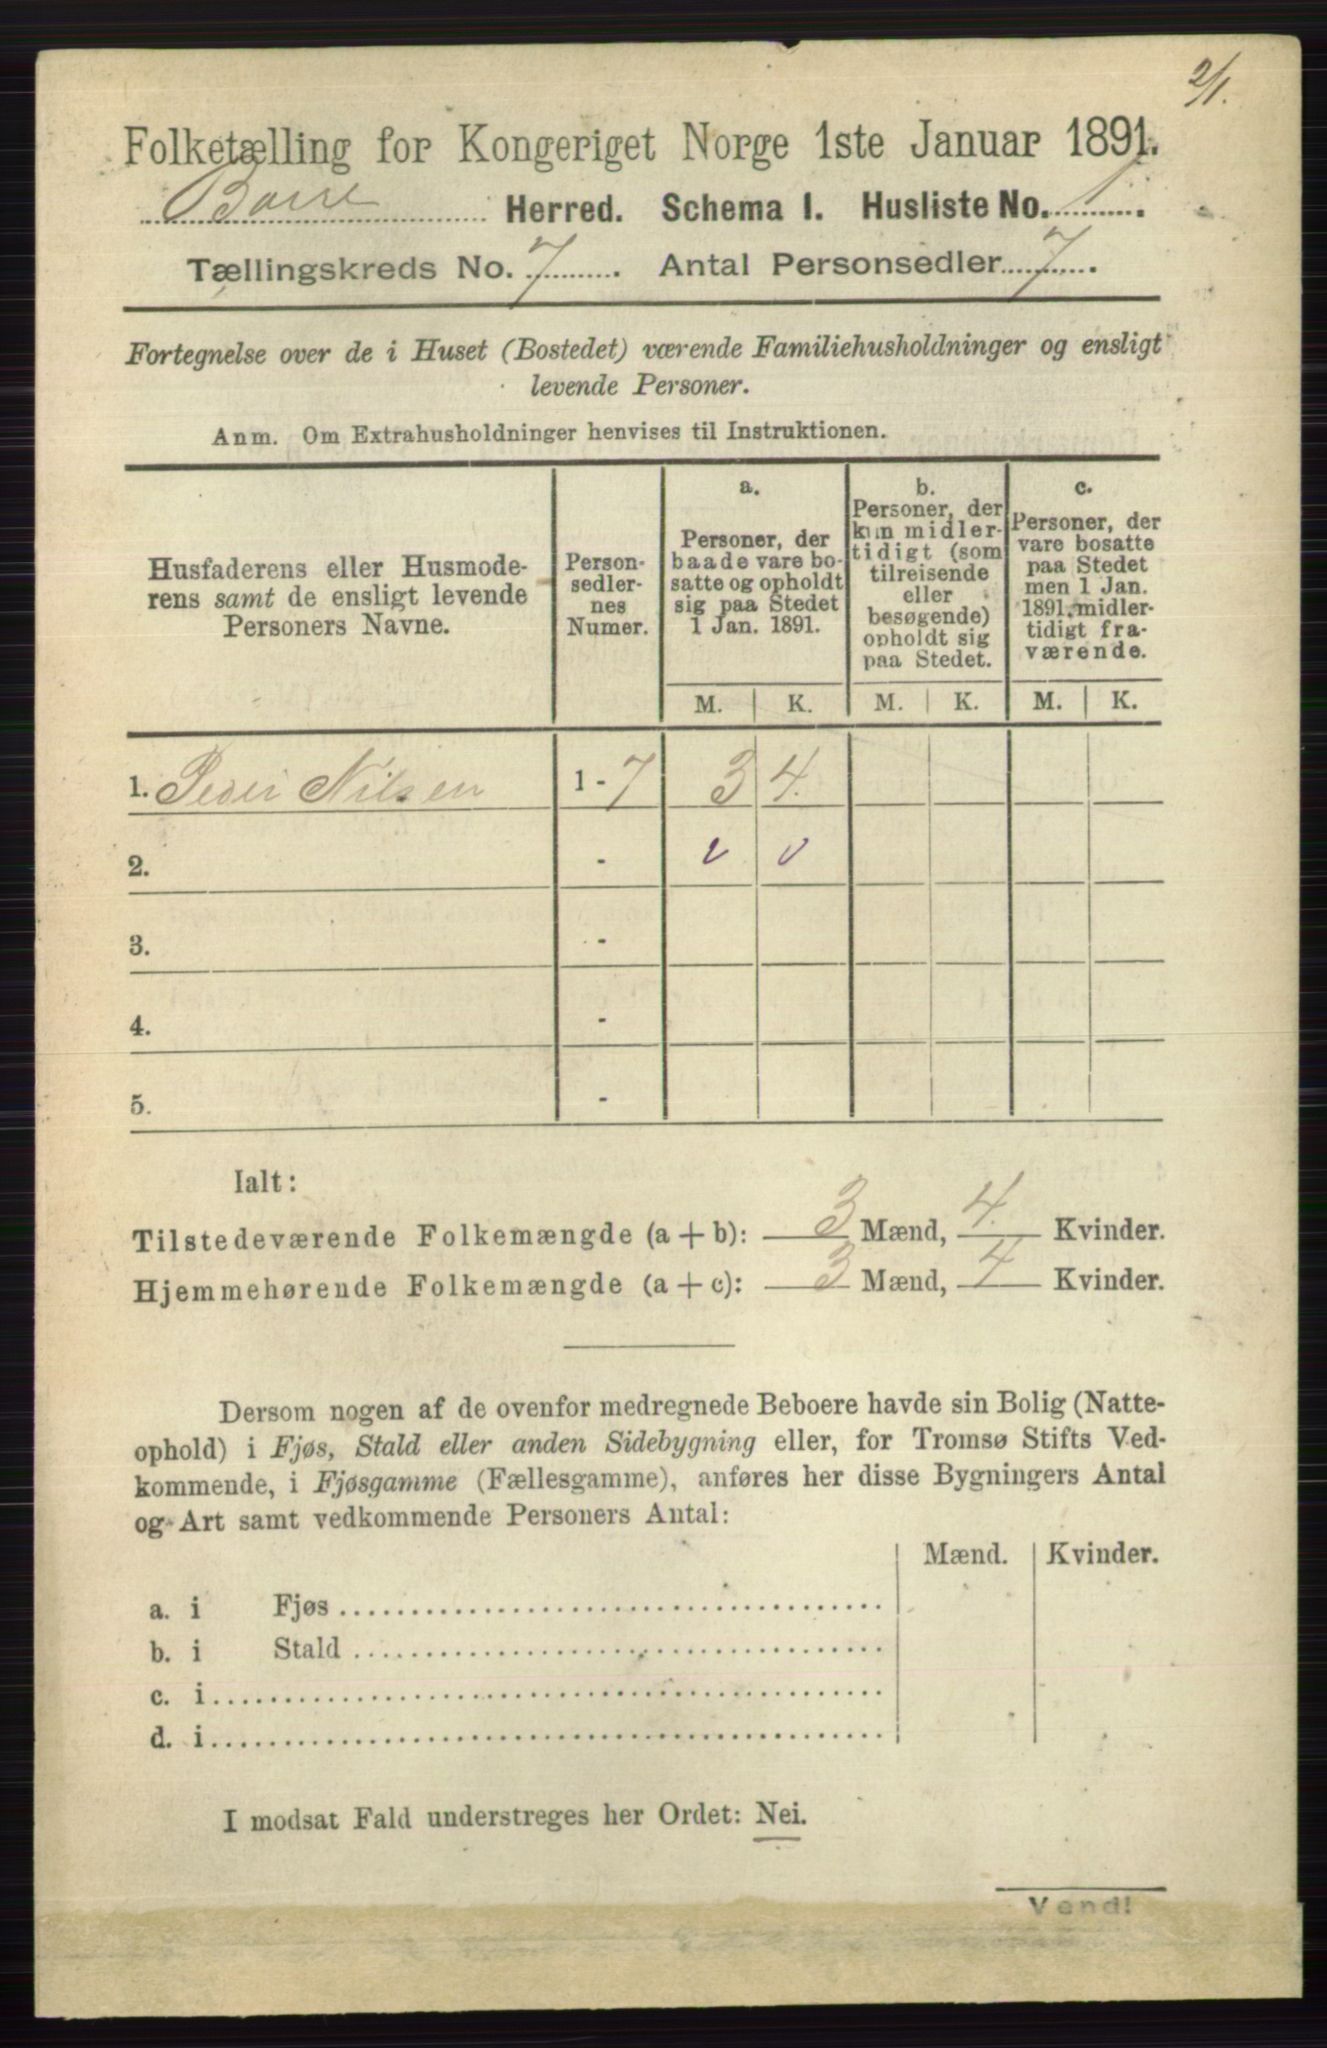 2/1.
Folketælling for Kongeriget Norge 1ste Januar 1891.
Borre Herred. Schema I. Husliste No. 1.
Tællingskreds No. 7. Antal Personsedler 7.
Fortegnelse over de i Huset (Bostedet) værende Familiehusholdninger og ensligt
levende Personer.
Anm. Om Extrahusholdninger henvises til Instruktionen.
Husfaderens eller Husmode-
rens samt de ensligt levende
Personers Navne.
Person-
sedler-
nes
Numer.
a.
Personer, der
baade vare bo-
satte og opholdt
sig paa Stedet
1 Jan. 1891.
b.
Personer, der
kun midler-
tidigt (som
tilreisende
eller
besøgende)
opholdt sig
paa Stedet.
c.
Personer, der
vare bosatte
paa Stedet
men 1 Jan.
1891 midler-
tidigt fra-
værende.
M. K. M. K. M. K.
1. Peder Nilsen 1 - 7 3 4.
2. - v v
3. -
4. -
5. -
Ialt:
Tilstedeværende Folkemængde (a + b): 3 Mænd, 4. Kvinder.
Hjemmehørende Folkemængde (a + c): 3 Mænd, 4 Kvinder.
Dersom nogen af de ovenfor medregnede Beboere havde sin Bolig (Natte-
ophold) i Fjøs, Stald eller anden Sidebygning eller, for Tromsø Stifts Ved-
kommende, i Fjøsgamme (Fællesgamme), anføres her disse Bygningers Antal
og Art samt vedkommende Personers Antal:
Mænd. Kvinder.
a. i Fjøs
b. i Stald
c. i
d. i
I modsat Fald understreges her Ordet: Nei.
Vend!